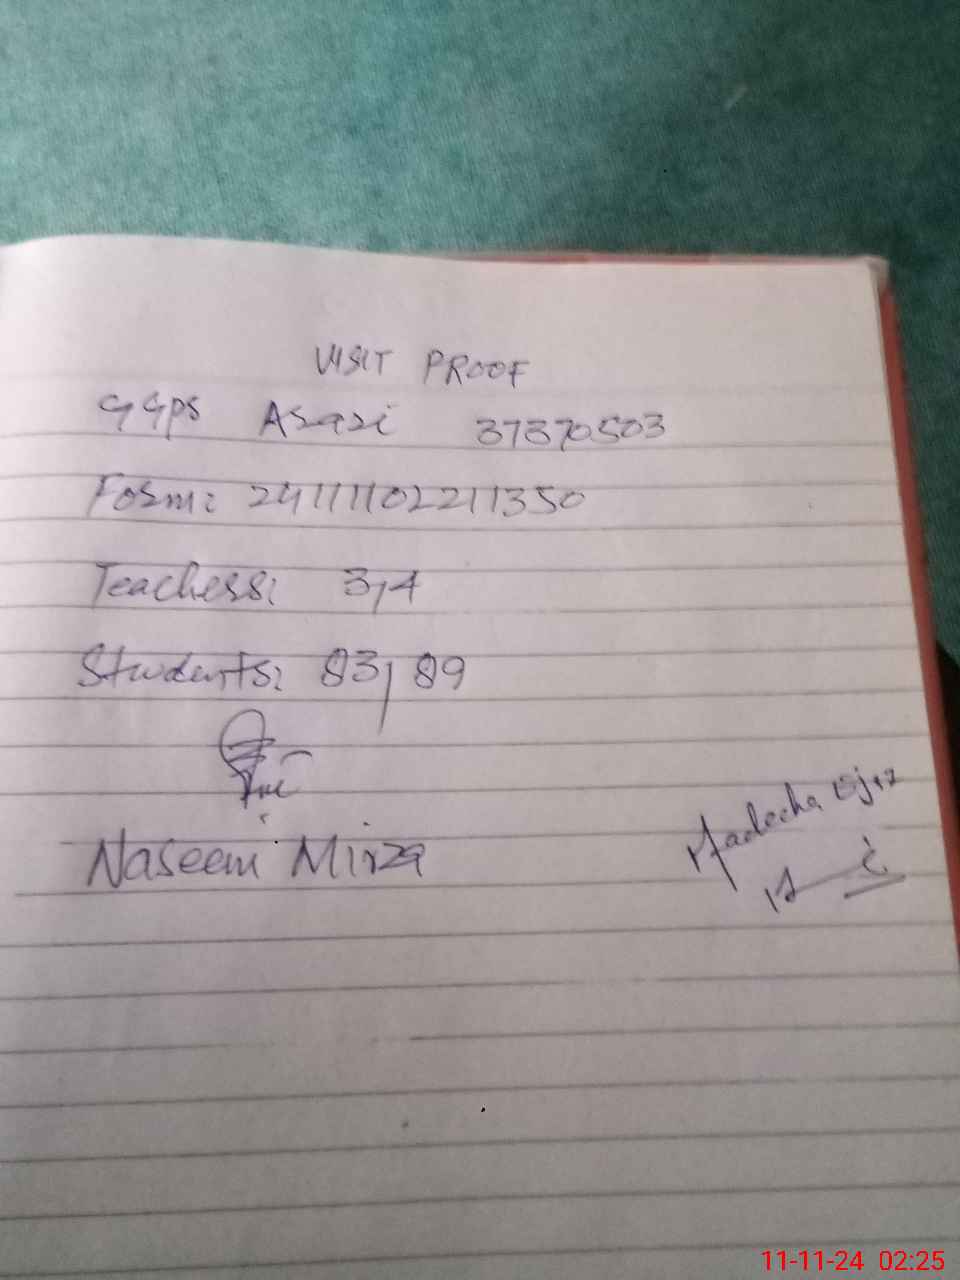 VISIT PROOF
GGPS Asari 37370503
Form: 241111102211350
Teachers: 3,4
Students: 83/89
Naseem Mirza
Madeeha Ejaz
11-11-24 02:25